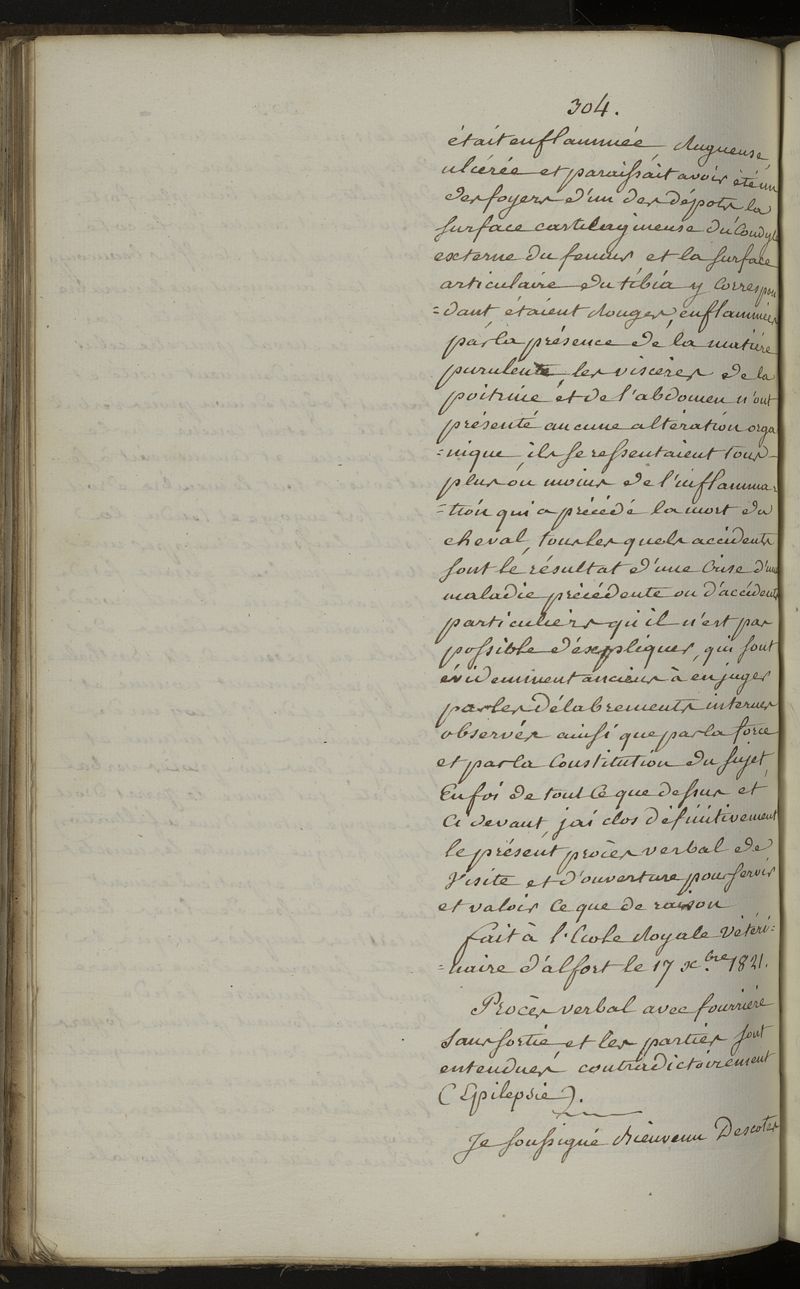 304.
était enflammée, rugueuse,
ulcérée et paraissait avoir été un
des foyers d'un des dépots la
surface cartilagineuse du Condyle
externe du femur et la surface
articulaire du tibia y correspon
=dant étaient rouges, enflammées
par la présence de la matière
purulente, les viscères de la
poitrine et de l'abdomen n'ont
présenté aucune altération orga
=nique ils se ressentaient tous
plus ou moins de l'inflamma=
=tion qui a précédé la mort du
cheval, tous les quels accidents
sont le résultat d'une Crise d'une
maladie précédente ou d'accidents
particuliers qu'il n'est pas
possible d'expliquer, qui sont
évidemment anciens à en juger
par les délabrements internes
observés ainsi que par la force
et par la Constitution du sujet,
En foi de tout Ce que dessus et
Ci devant, j'ai clos définitivement
le présent procès verbal de
Visite et d'ouverture pour servir
et valoir Ce que de raison
fait à l'Ecole Royale Vétéri=
=naire d'alfort le 17 xbre 1821.
Procès verbal avec fourrière
sans sortie et les parties sont
entendues contradictoirement
(Epilepsie).
Je soussigné Bienvenu Descotes